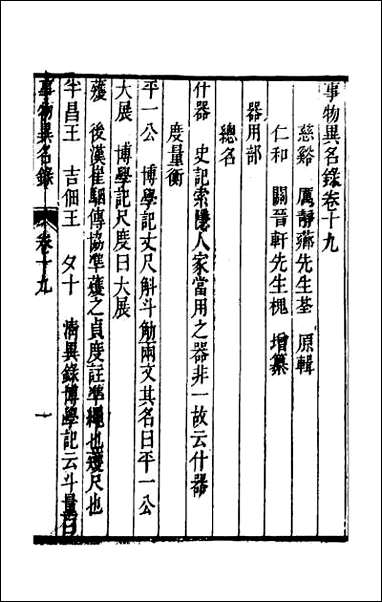 事物異名錄卷十九
慈谿 厲靜薌先生荃 原輯
仁和 關晉軒先生槐 增纂
器用部
總名
什器 史記索隱人家當用之器非一故云什器
度量衡
平一公 博學記丈尺斛斗觔兩文其名曰平一公
大展 博學記尺度曰大展
蒦 後漢崔駰傳協準蒦之貞度註準繩也蒦尺也
半昌王 吉佃王 夕十 淸異錄博學記云斗量曰
事物異名錄 卷十九 一